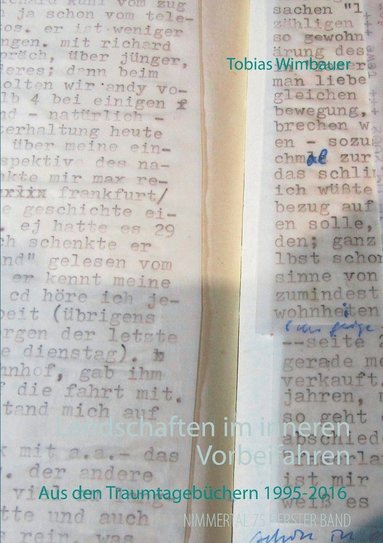 Tobias Wimbauer
richard kuhl vom zug
ja schon vom tele-
os. er ist weniger
ngen. mit richard
präch, über jünger,
eres; dann beim
olten wir andy vo-
lb 4 bei einigen
nd - natürlich -
terhaltung heute
über meine ein-
spektive des na-
kte mir max re-
frankfurt/
e geschichte ei-
. ej hatte es 29
ch schenkte er
nd" gelesen vom
er kennt meine
cd höre ich je-
beit (übrigens
orgen der letzte
e dienstag).
nhof, gab ihm
f die fahrt mit.
stand mich auf
k mit a.a.- das
. der andere
vi
tte und auch
rein, was
sachen "l
zähligen
so gewohn
ärung des
man liebe
gleichen
bewegung,
brechen w
en - sozu
zur
das schli
ich wüßte
bezug auf
en solle,
den; ganz
lbst schon
sinne von
zumindest
wohnheiten
--seite 2
gerade mo
verkauft.
jahren, n
so geht
abschied
erla
ist mir
weiß es
Landschaften im inneren
Vorbeifahren
Aus den Traumtagebüchern 1995-2016
NIMMERTAL 75 ERSTER BAND